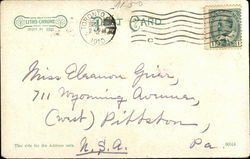 1150
CARD
1910
Miss Eleanor Grier,
711 Wyoming Avenue,
(West) Pittston,
U.S.A. Pa.
This side for the Address only.